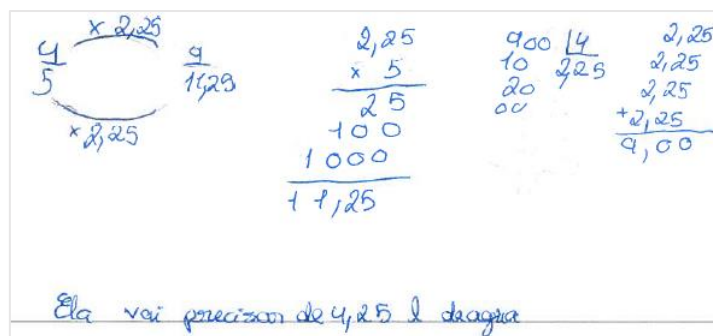 × 2,25
4/5 9/11,25
× 2,25
2,25
× 5
25
100
1000
11,25
900 |4
10 2,25
20
00
2,25
2,25
2,25
+2,25
9,00
Ela vai precisar de 4,25 l de agua